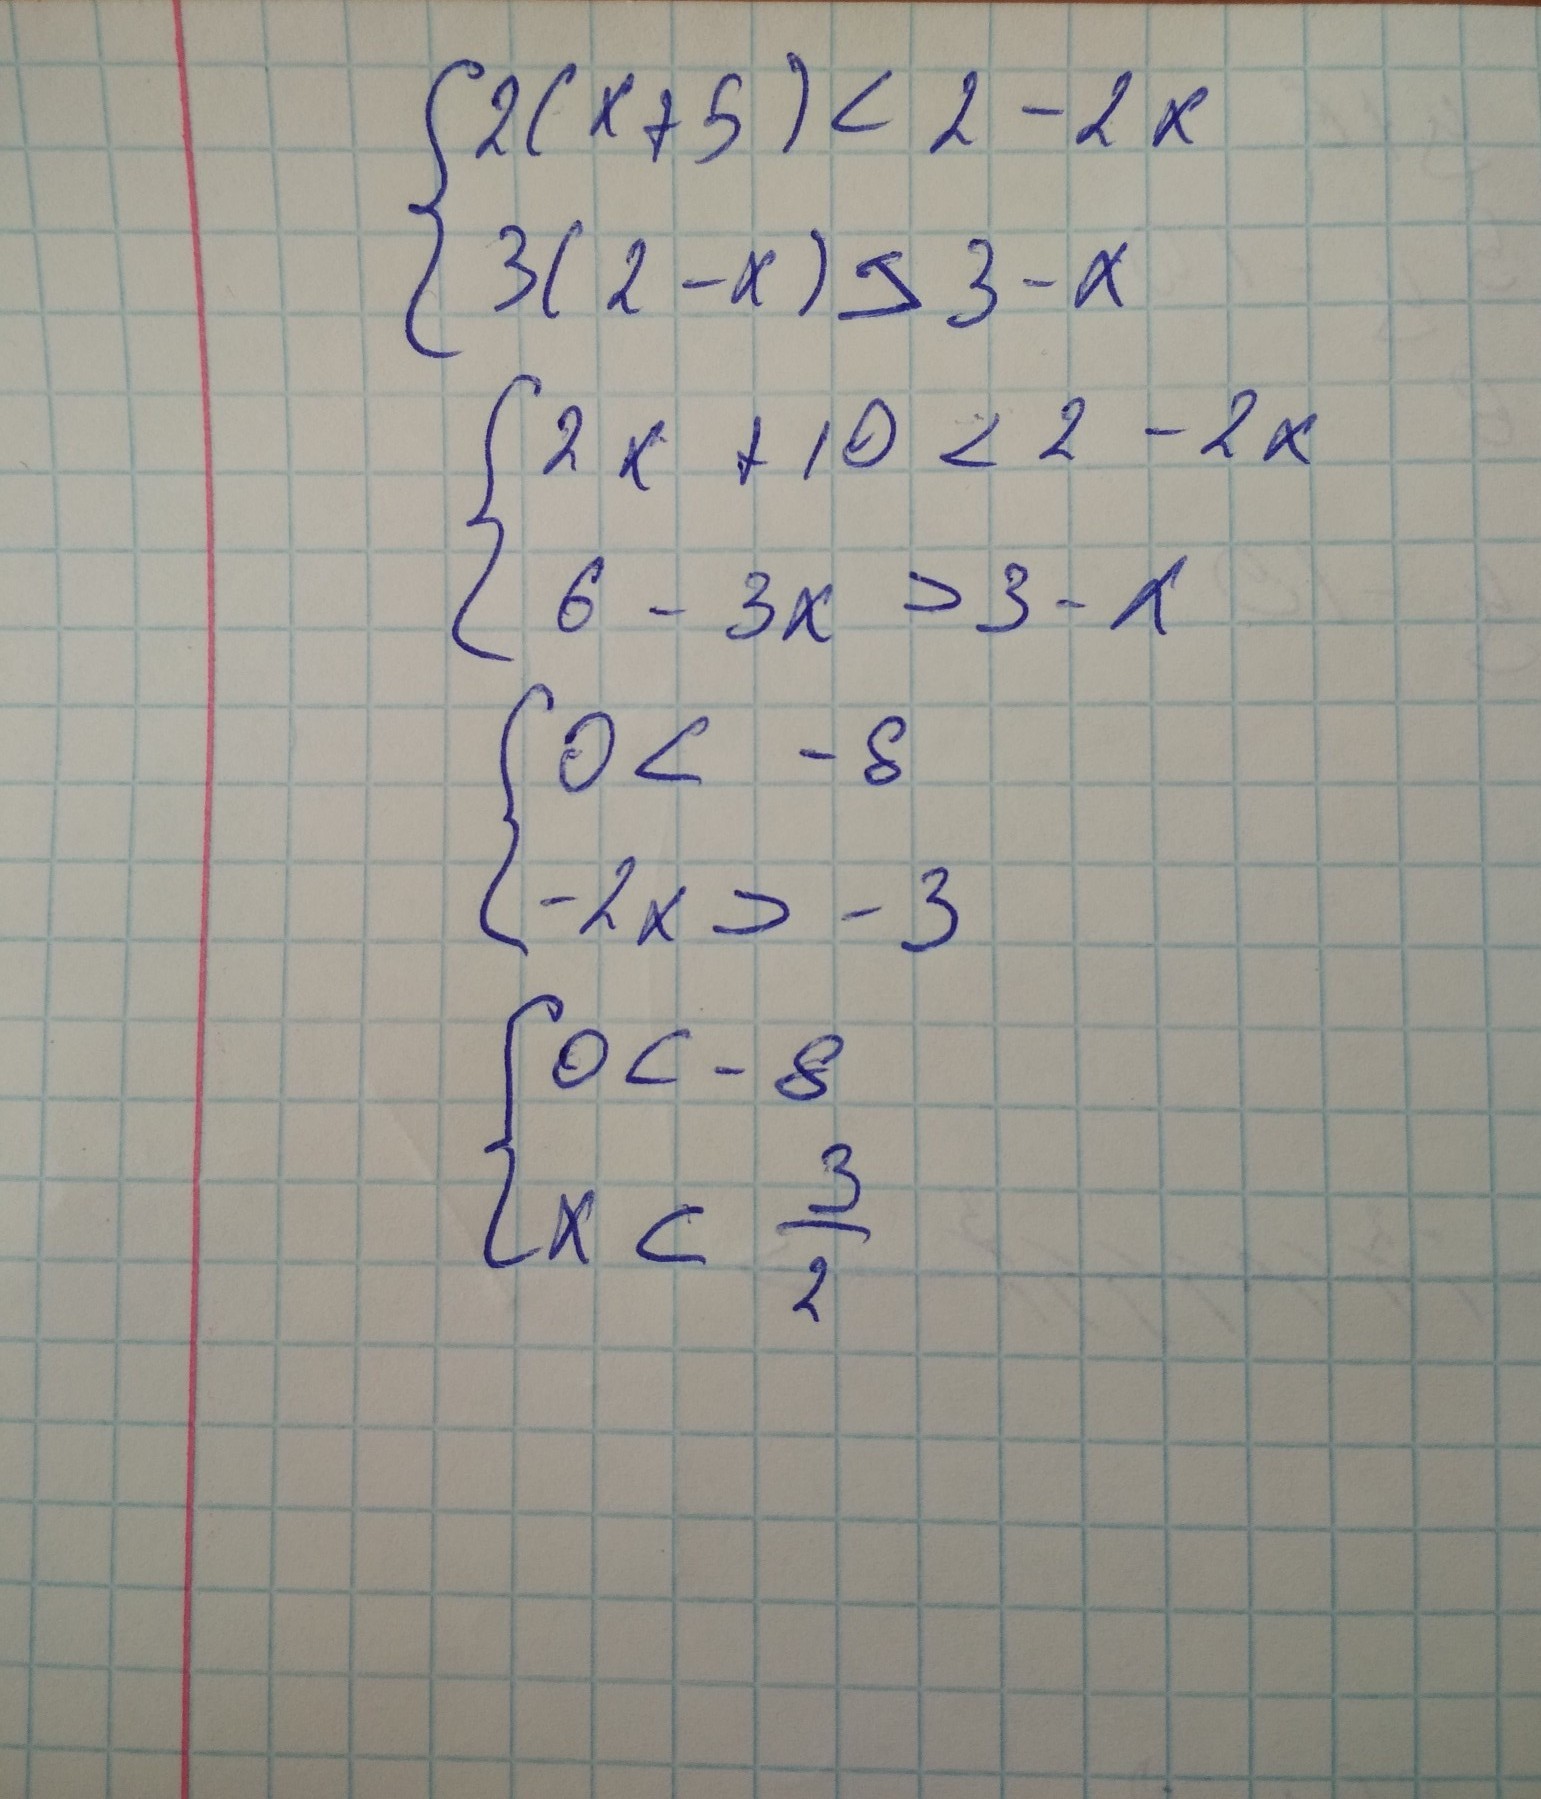 2(x+5) < 2 - 2x
3(2-x) ⩾ 3-x
2x + 10 < 2 - 2x
6 - 3x > 3 - x
0 < -8
-2x > -3
0 < -8
x < 3/2